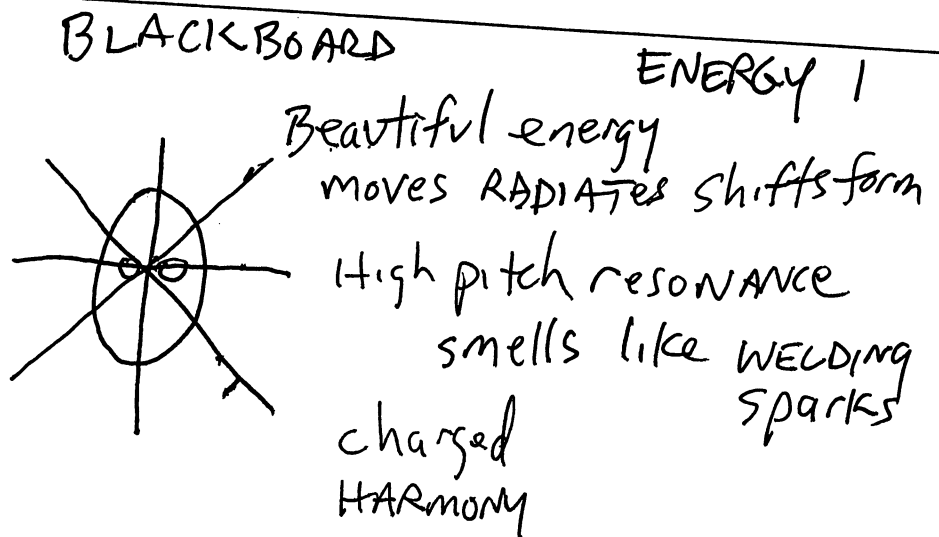 BLACKBOARD
ENERGY 1
Beautiful energy
moves RADIATES shifts form
High pitch resONANce
smells like WELDING
sparks
charged
HARMONY